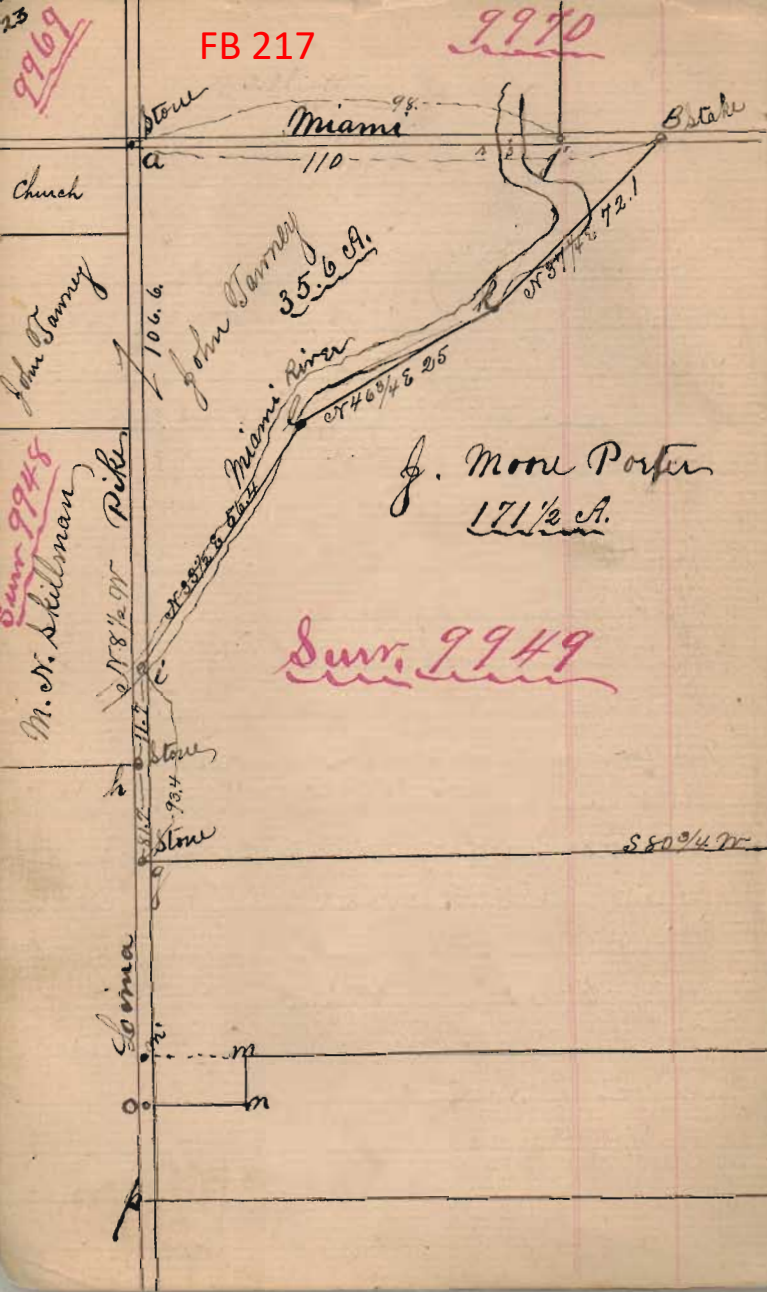 23
9969
FB 217
9970
Stone
98.
Miami
B Stake
a
110
Church
John Tawney
106.6.
John Tawney
35.6 A.
N 37 1/4 E 72.1
R
N 46 3/4 E 25
Miami River
J. Moore Porter
171 1/2 A.
Surv 9948
M. N. Skillman
N 8 1/2 W
Pike
N 33 1/2 E 56.4
Surv. 9949
c
11.7
Stone
h
93.4
81.7
Stone
g
S 80 3/4 W
Loima
n'
m
O
n
p